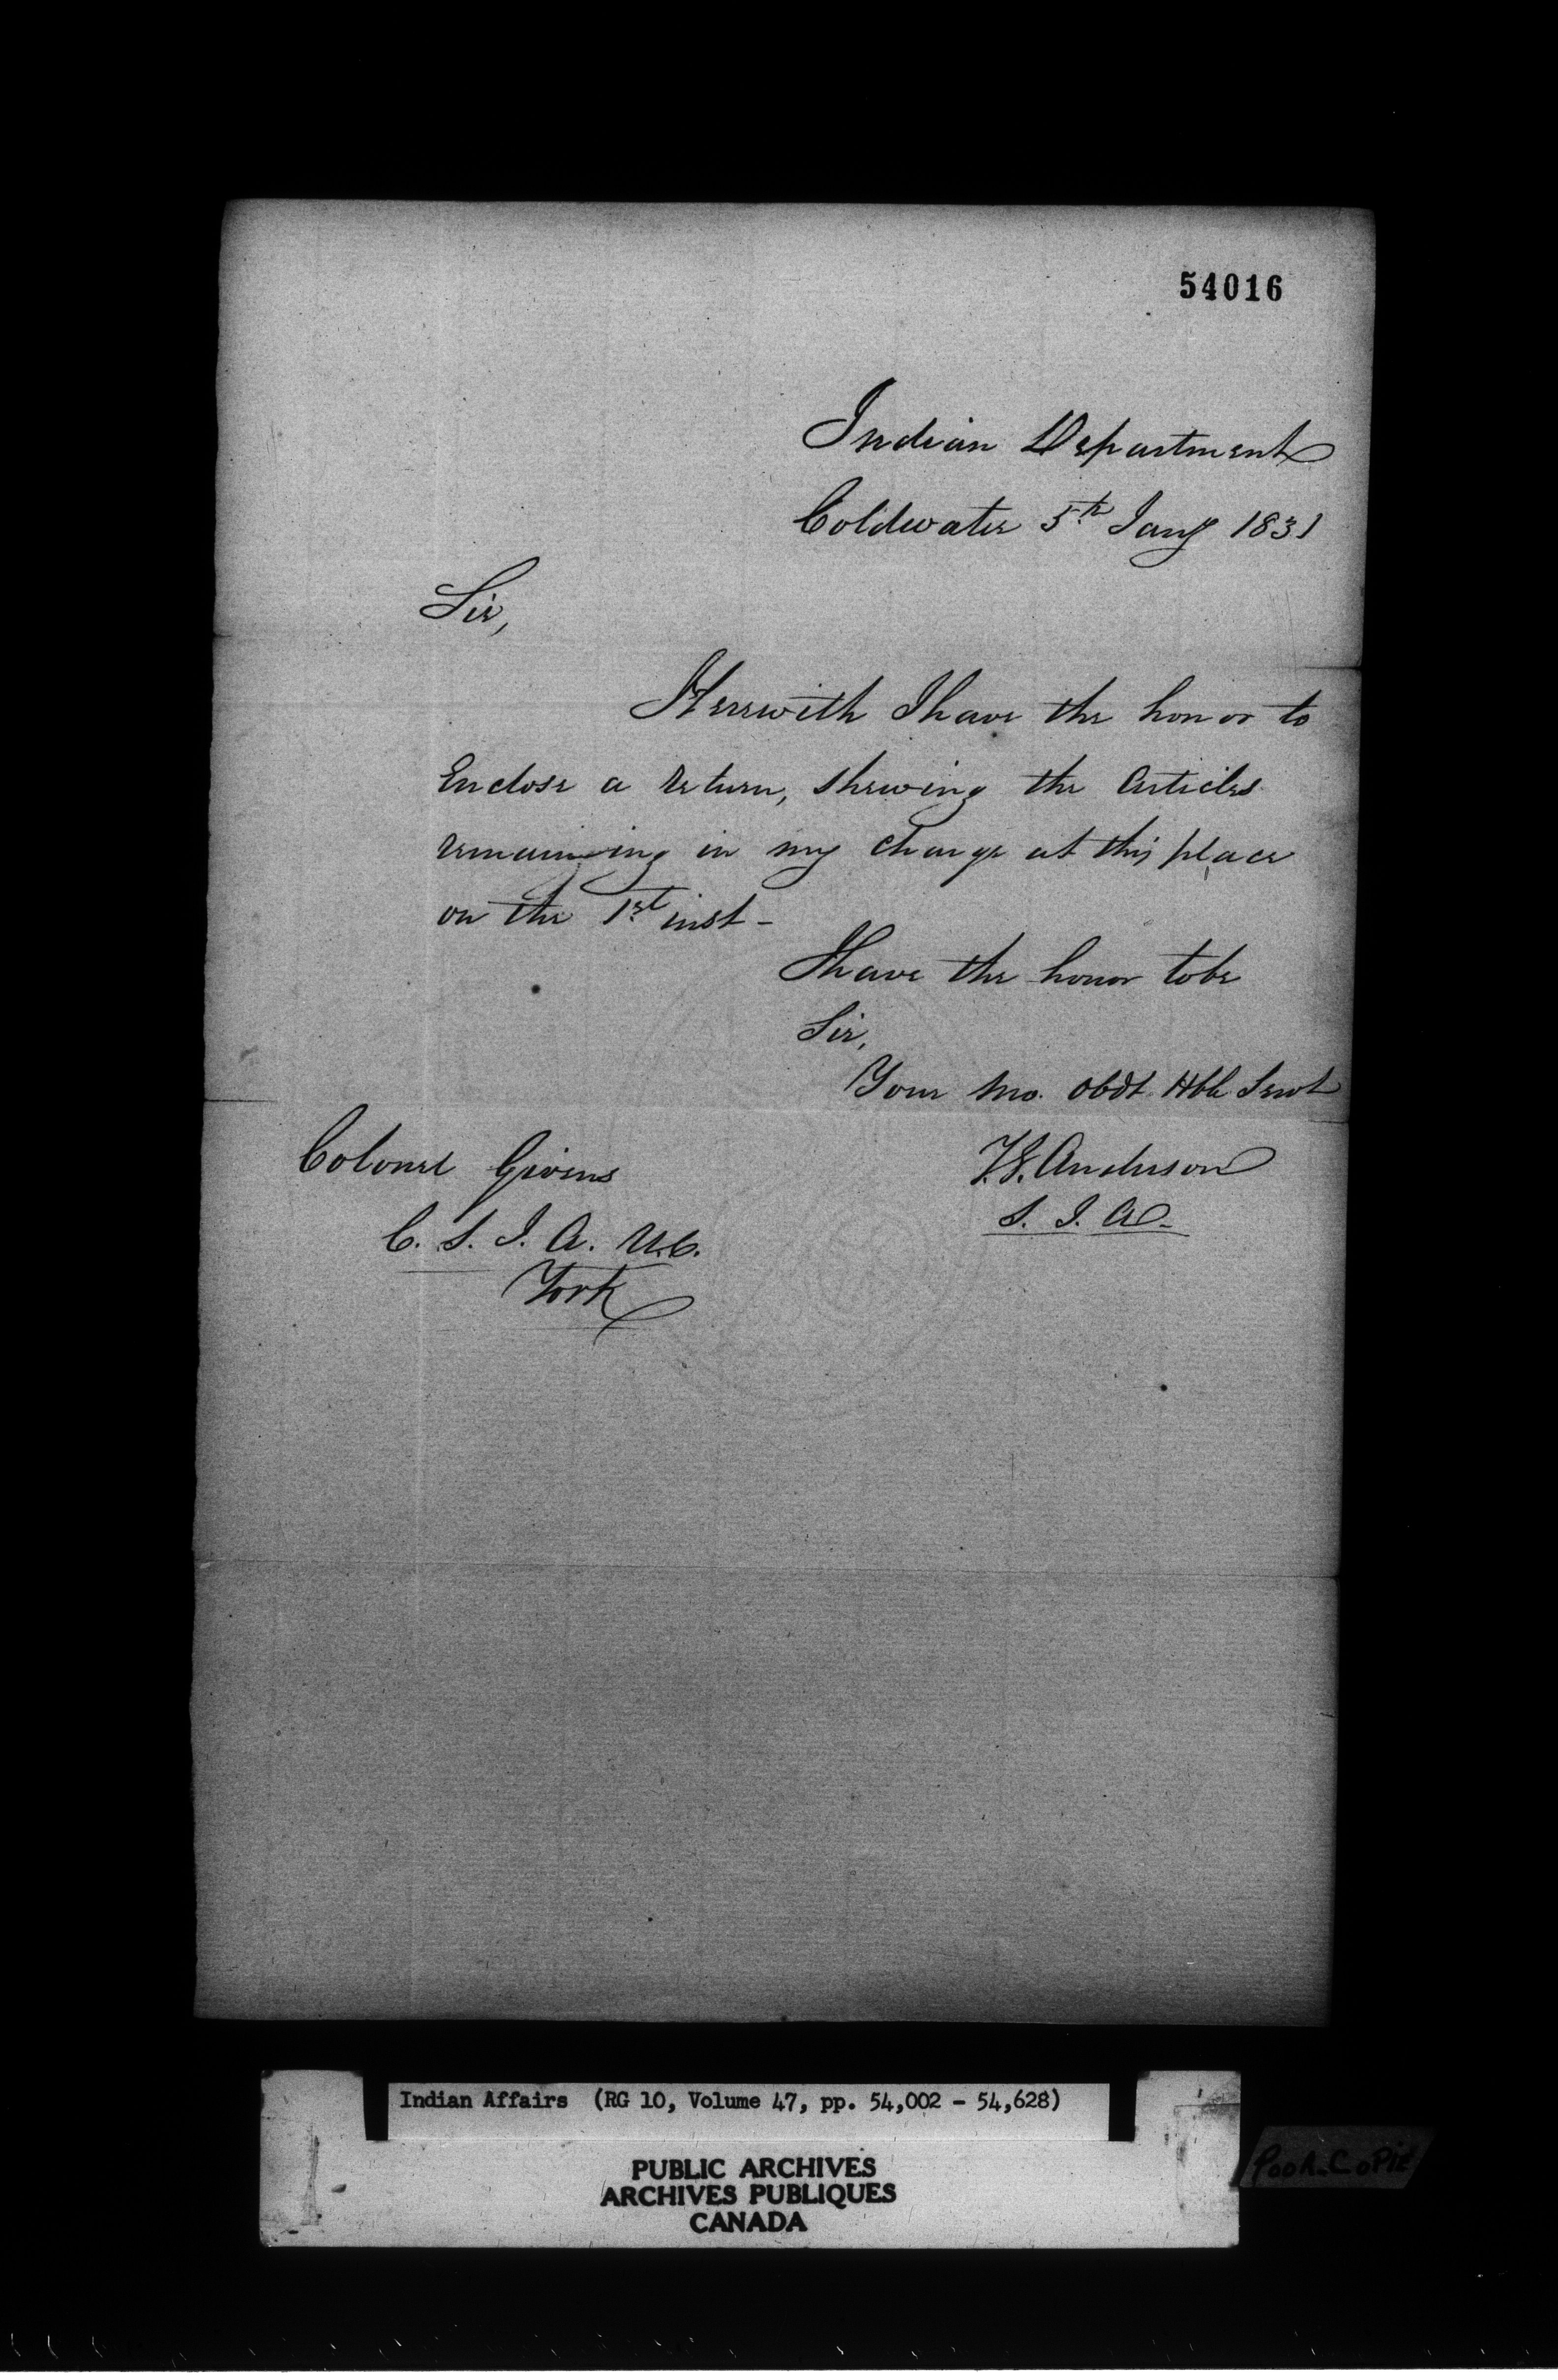 54016
Indian Department
Coldwater 5th Jany 1831
Sir,
Herewith I have the honor to
Enclose a return, shewing the Articles
remaining in my charge at this place
on the 1st inst -
I have the honor to be
Sir,
Your Mo. Obdt Hble Servt
T. G. Anderson
S. I. A.
Colonel Givins
C. S. I. A. U.C.
York
Indian Affairs (RG 10, Volume 47, pp. 54,002 - 54,628)
PUBLIC ARCHIVES
ARCHIVES PUBLIQUES
CANADA
POOR COPIE